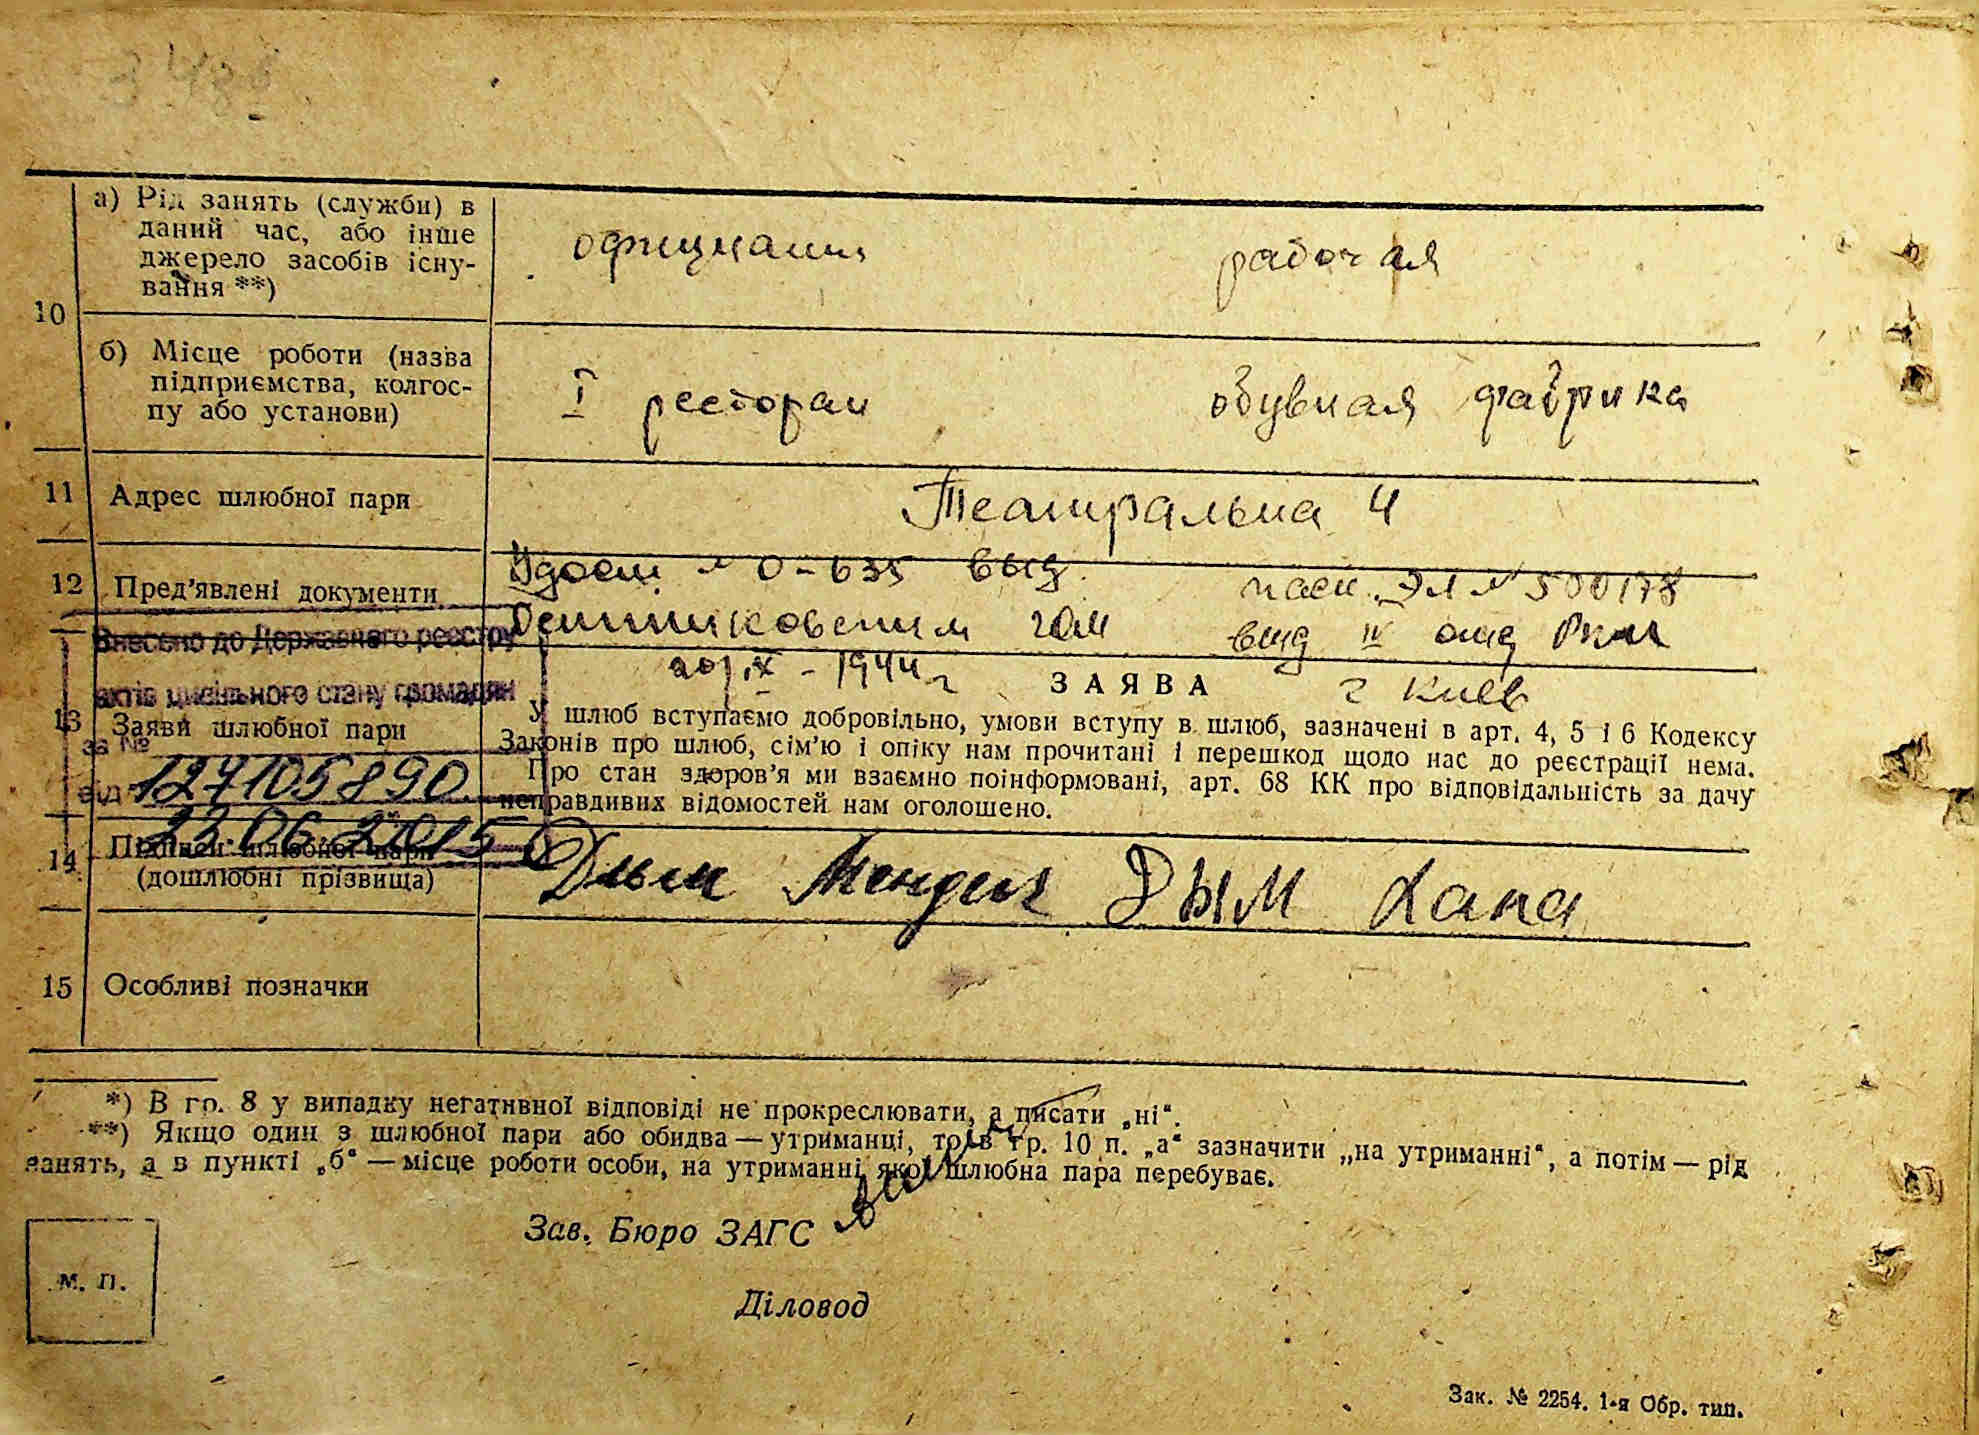 а) Рід занять (служби) в
даний час, або інше
джерело засобів існу-
вання **)
официант рабочая
10
б) Місце роботи (назва
підприємства, колгос-
пу або установи)
I ресторан обувная фабрика
11 Адрес шлюбної пари
Театральна 4
12 Пред'явлені документи
Удост № 0-635 выд. пасп. ЭЛ № 500178
гом выд IV отд РКМ
20/IX - 1944 г г Киев
Внесено до Державного реєстру
актів цивільного стану громадян
за № 127105890
від 23.06.2015
13 Заяви шлюбної пари
ЗАЯВА
У шлюб вступаємо добровільно, умови вступу в шлюб, зазначені в арт. 4, 5 і 6 Кодексу
Законів про шлюб, сім'ю і опіку нам прочитані і перешкод щодо нас до реєстрації нема.
Про стан здоров'я ми взаємно поінформовані, арт. 68 КК про відповідальність за дачу
неправдивих відомостей нам оголошено.
14 Підписи шлюбної пари
(дошлюбні прізвища)
Дым Мендель Дым Хана
15 Особливі позначки
*) В гр. 8 у випадку негативної відповіді не прокреслювати, а писати „ні“.
**) Якщо один з шлюбної пари або обидва — утриманці, то в гр. 10 п. „а“ зазначити „на утриманні“, а потім — рід
занять, а в пункті „б“ — місце роботи особи, на утриманні якої шлюбна пара перебуває.
Зав. Бюро ЗАГС
М. П.
Діловод
Зак. № 2254. 1-я Обр. тип.